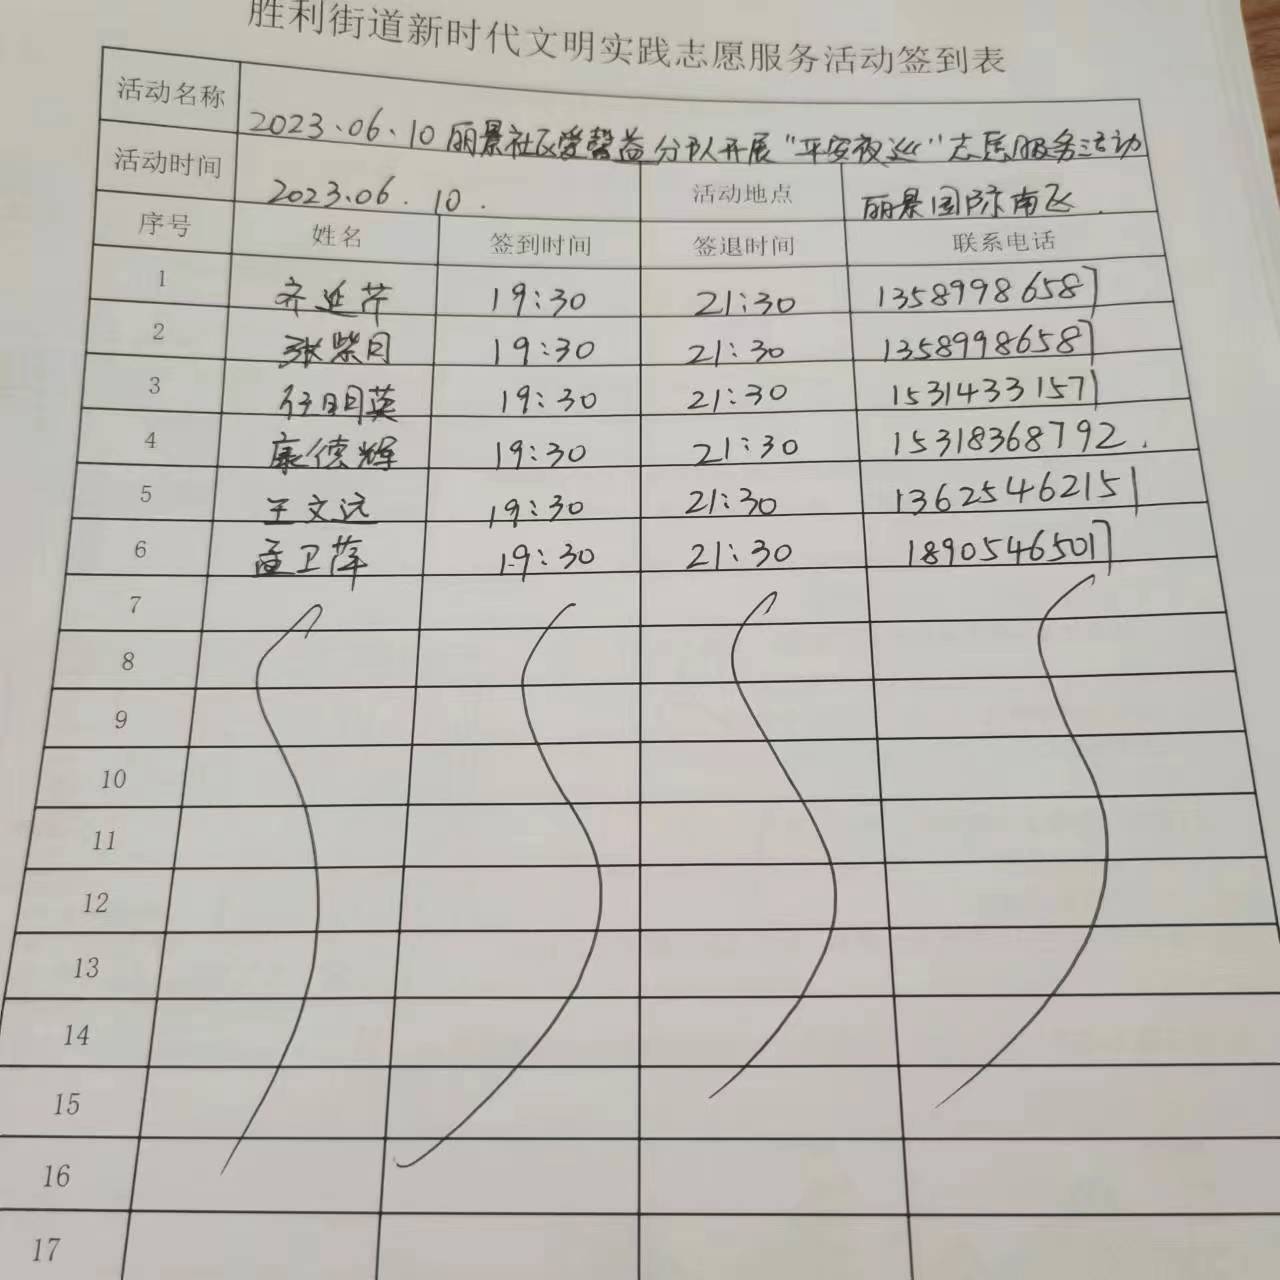 胜利街道新时代文明实践志愿服务活动签到表
活动名称 2023.06.10丽景社区爱馨益分队开展"平安夜巡"志愿服务活动
活动时间 2023.06.10. 活动地点 丽景国际南区.
序号 姓名 签到时间 签退时间 联系电话
1 齐延芹 19:30 21:30 13589986587
2 张紫月 19:30 21:30 13589986587
3 任明英 19:30 21:30 15314331571
4 康德辉 19:30 21:30 15318368792.
5 王文远 19:30 21:30 13625462151
6 孟卫萍 19:30 21:30 18905465017
7
8
9
10
11
12
13
14
15
16
17